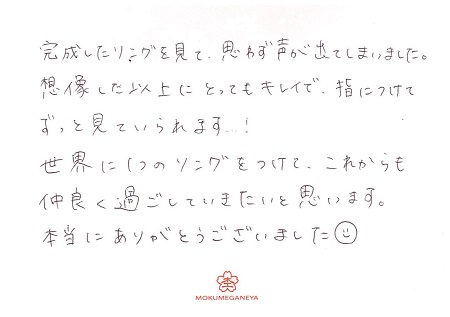 完成したリングを見て、思わず声が出てしまいました。
想像した以上にとってもキレイで、指につけて
ずっと見ていられます…!
世界に1つのリングをつけて、これからも
仲良く過ごしていきたいと思います。
本当にありがとうございました☺
MOKUMEGANEYA